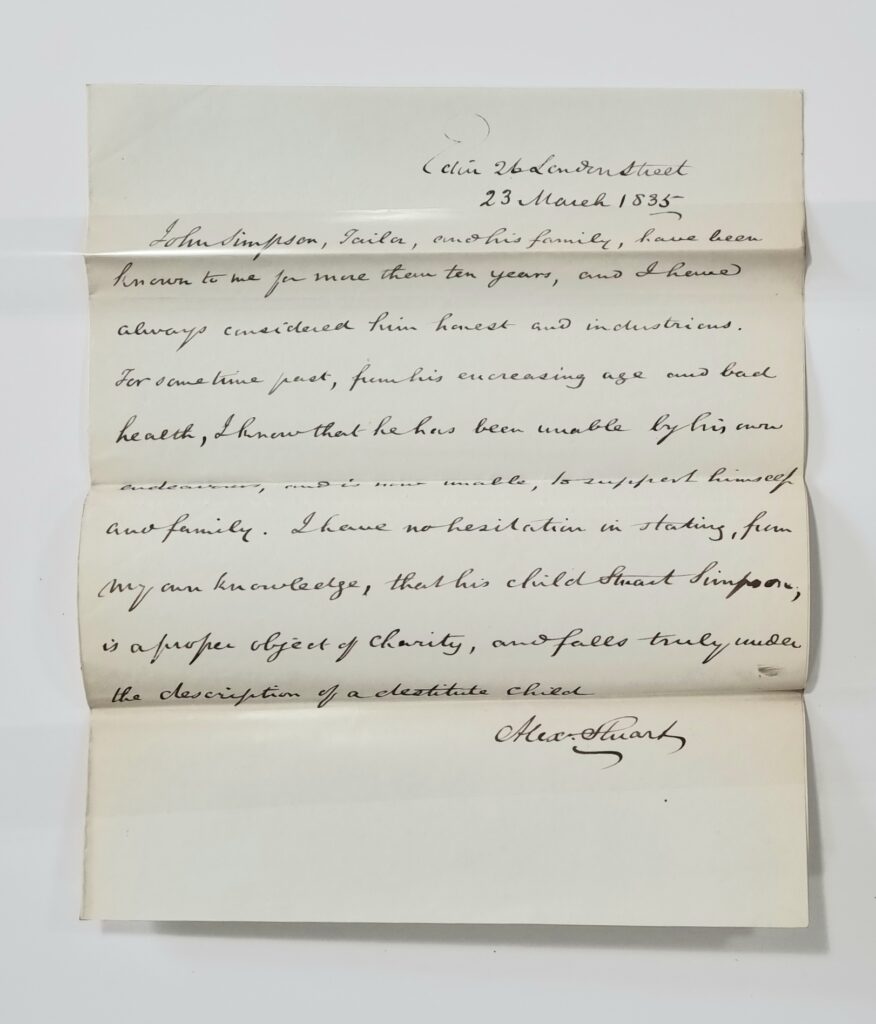 Edin 26 London Street
23 March 1835
John Simpson, Tailor, and his family, have been
known to me for more than ten years, and I have
always considered him honest and industrious.
For some time past, from his encreasing age and bad
health, I know that he has been unable by his own
endeavours, and is now unable, to support himself
and family. I have no hesitation in stating, from
my own knowledge, that his child Stuart Simpson,
is a proper object of charity, and falls truly under
the description of a destitute child
Alexr. Stuart